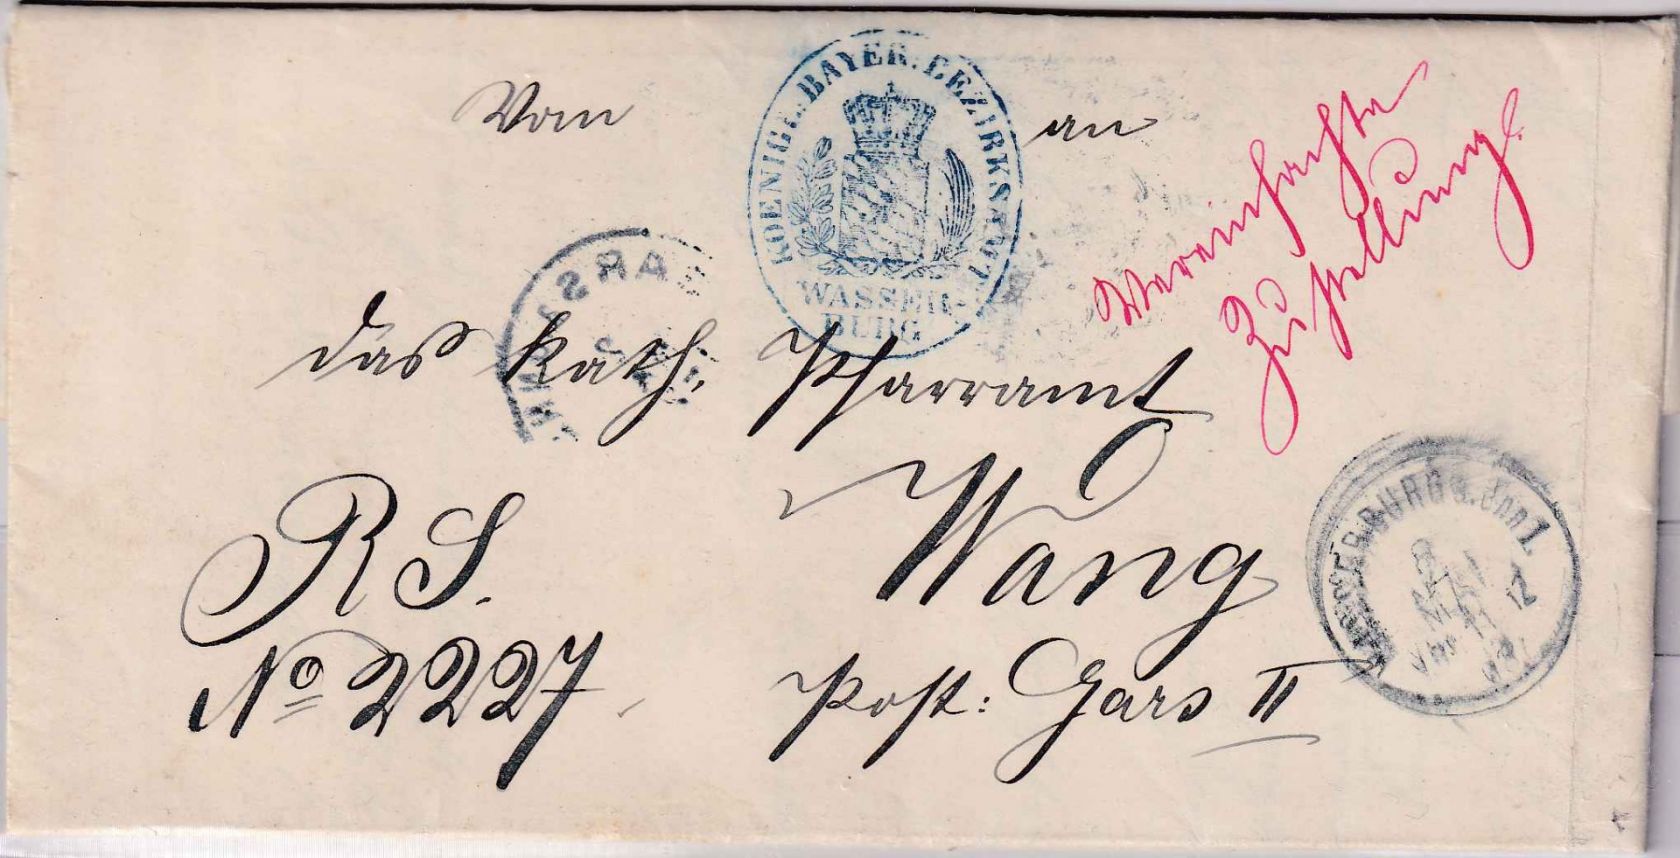 Vom an
KOENIGL. BAYER. BEZIRKSAMT
WASSER-
BURG
Vereinfachte
Zustellung.
das kath. Pfarramt
Wang
R S.
No 2227.
Post: Gars II
WASSERBURG a. Inn 1.